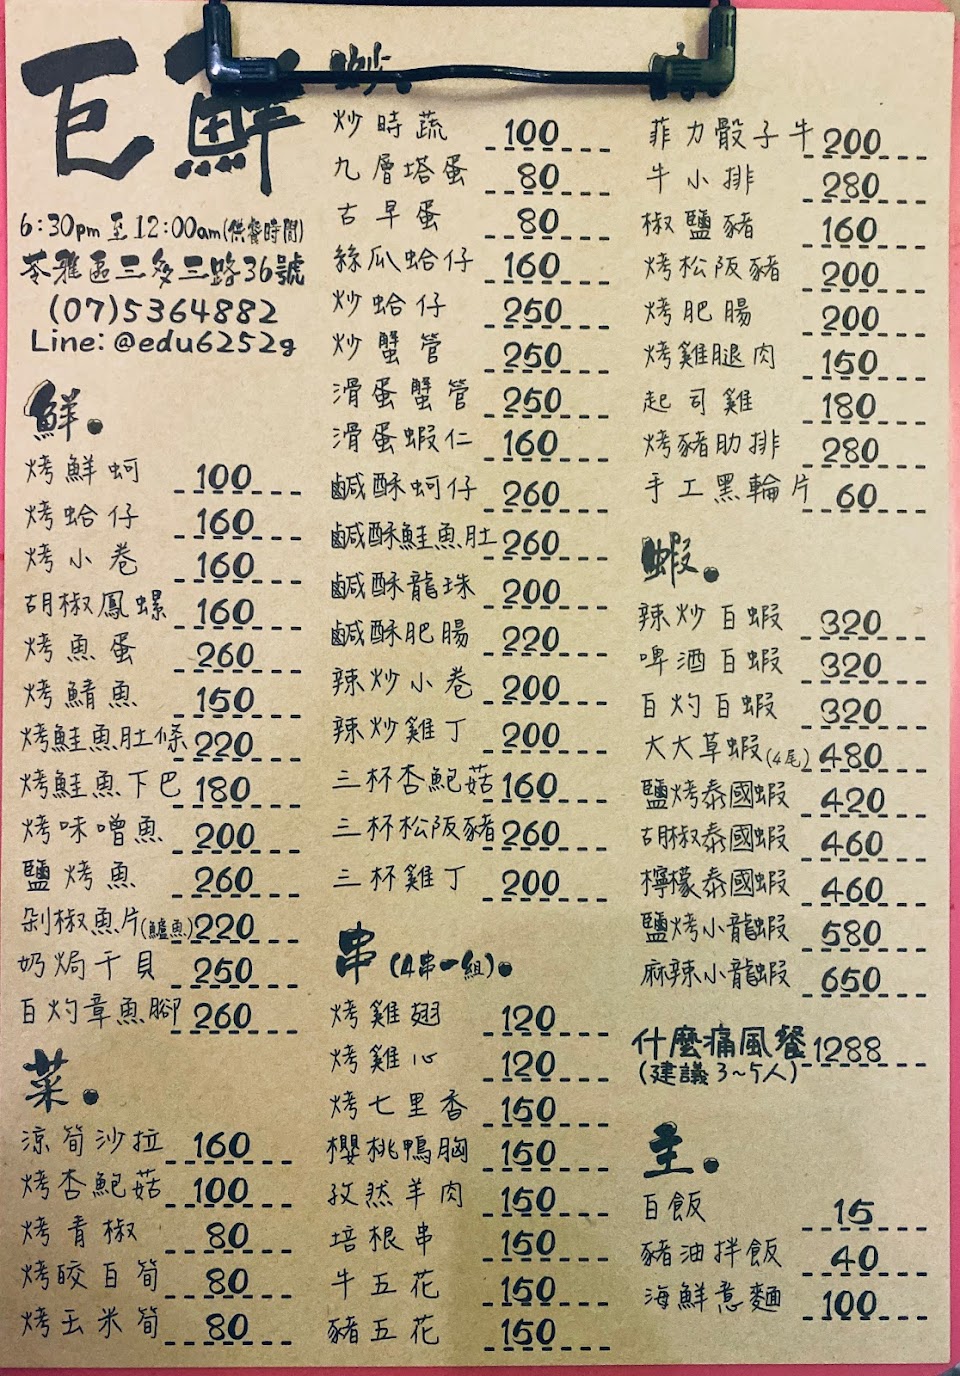 巨鮮
6:30pm至12:00am(供餐時間)
苓雅區三多三路36號
(07)5364882
Line: @edu6252g
鮮.
烤鮮蚵 100
烤蛤仔 160
烤小卷 160
胡椒鳳螺 160
烤魚蛋 260
烤鯖魚 150
烤鮭魚肚條 220
烤鮭魚下巴 180
烤味噌魚 200
鹽烤魚 260
剁椒魚片(鱸魚) 220
奶焗干貝 250
白灼章魚腳 260
菜.
涼筍沙拉 160
烤杏鮑菇 100
烤青椒 80
烤皎白筍 80
烤玉米筍 80
炒.
炒時蔬 100
九層塔蛋 80
古早蛋 80
絲瓜蛤仔 160
炒蛤仔 250
炒蟹管 250
滑蛋蟹管 250
滑蛋蝦仁 160
鹹酥蚵仔 260
鹹酥鮭魚肚 260
鹹酥龍珠 200
鹹酥肥腸 220
辣炒小卷 200
辣炒雞丁 200
三杯杏鮑菇 160
三杯松阪豬 260
三杯雞丁 200
串(4串一組).
烤雞翅 120
烤雞心 120
烤七里香 150
櫻桃鴨胸 150
孜然羊肉 150
培根串 150
牛五花 150
豬五花 150
菲力骰子牛 200
牛小排 280
椒鹽豬 160
烤松阪豬 200
烤肥腸 200
烤雞腿肉 150
起司雞 180
烤豬肋排 280
手工黑輪片 60
蝦.
辣炒白蝦 320
啤酒白蝦 320
白灼白蝦 320
大大草蝦(4尾) 480
鹽烤泰國蝦 420
胡椒泰國蝦 460
檸檬泰國蝦 460
鹽烤小龍蝦 580
麻辣小龍蝦 650
什麼痛風餐 1288
(建議3~5人)
主.
白飯 15
豬油拌飯 40
海鮮意麵 100